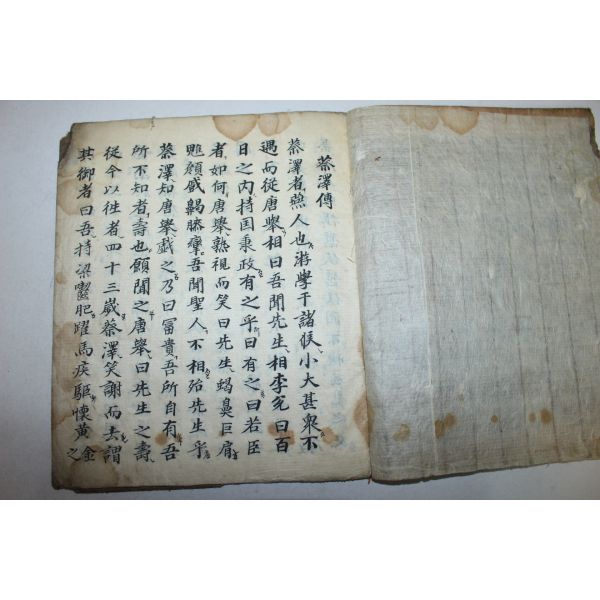 蔡澤傳
蔡澤者燕人也游學于諸侯小大甚衆不
遇而從唐擧相曰吾聞先生相李兌曰百
日之內持国秉政有之乎曰有之曰若臣
者如何唐擧熟視而笑曰先生蝎鼻巨肩
魋顔戚齃膝攣吾聞聖人不相殆先生乎
蔡澤知唐擧戱之乃曰冨貴吾所自有吾
所不知者壽也願聞之唐擧曰先生之壽
從今以徃者四十三嵗蔡澤笑謝而去謂
其御者曰吾持梁齧肥躍馬疾驅懷黃金
之